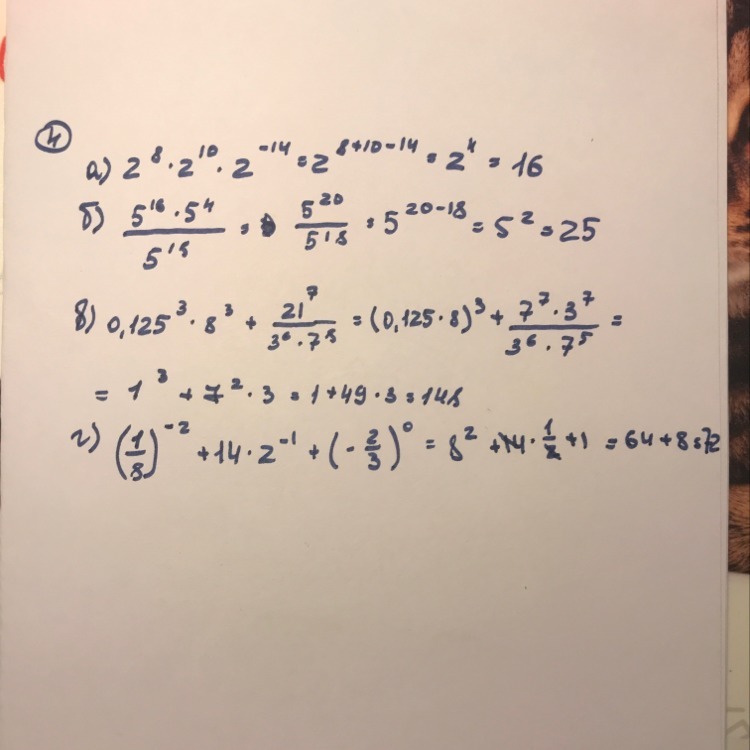 4
а) 2^8 · 2^10 · 2^-14 = 2^8+10-14 = 2^4 = 16
б) 5^16 · 5^4 / 5^18 = 5^20 / 5^18 = 5^20-18 = 5^2 = 25
в) 0,125^3 · 8^3 + 21^7 / 3^6 · 7^5 = (0,125 · 8)^3 + 7^7 · 3^7 / 3^6 · 7^5 =
= 1^3 + 7^2 · 3 = 1 + 49 · 3 = 148
г) (1/8)^-2 + 14 · 2^-1 + (-2/3)^0 = 8^2 + 14 · 1/2 + 1 = 64 + 8 = 72